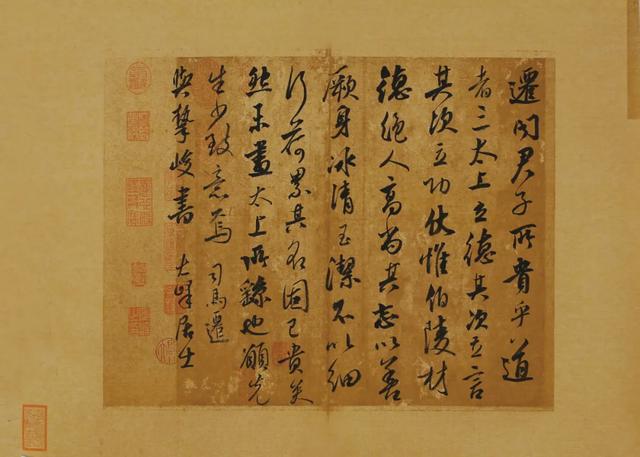 遷聞君子所貴乎道
者三太上立德其次立言
其次立功伏惟伯陵材
德絕人高尚其志以善
厥身冰清玉潔不以細
行荷累其名固已貴矣
然未盡太上所繇也願先
生少致意焉 司馬遷
與摯峻書 大	居士